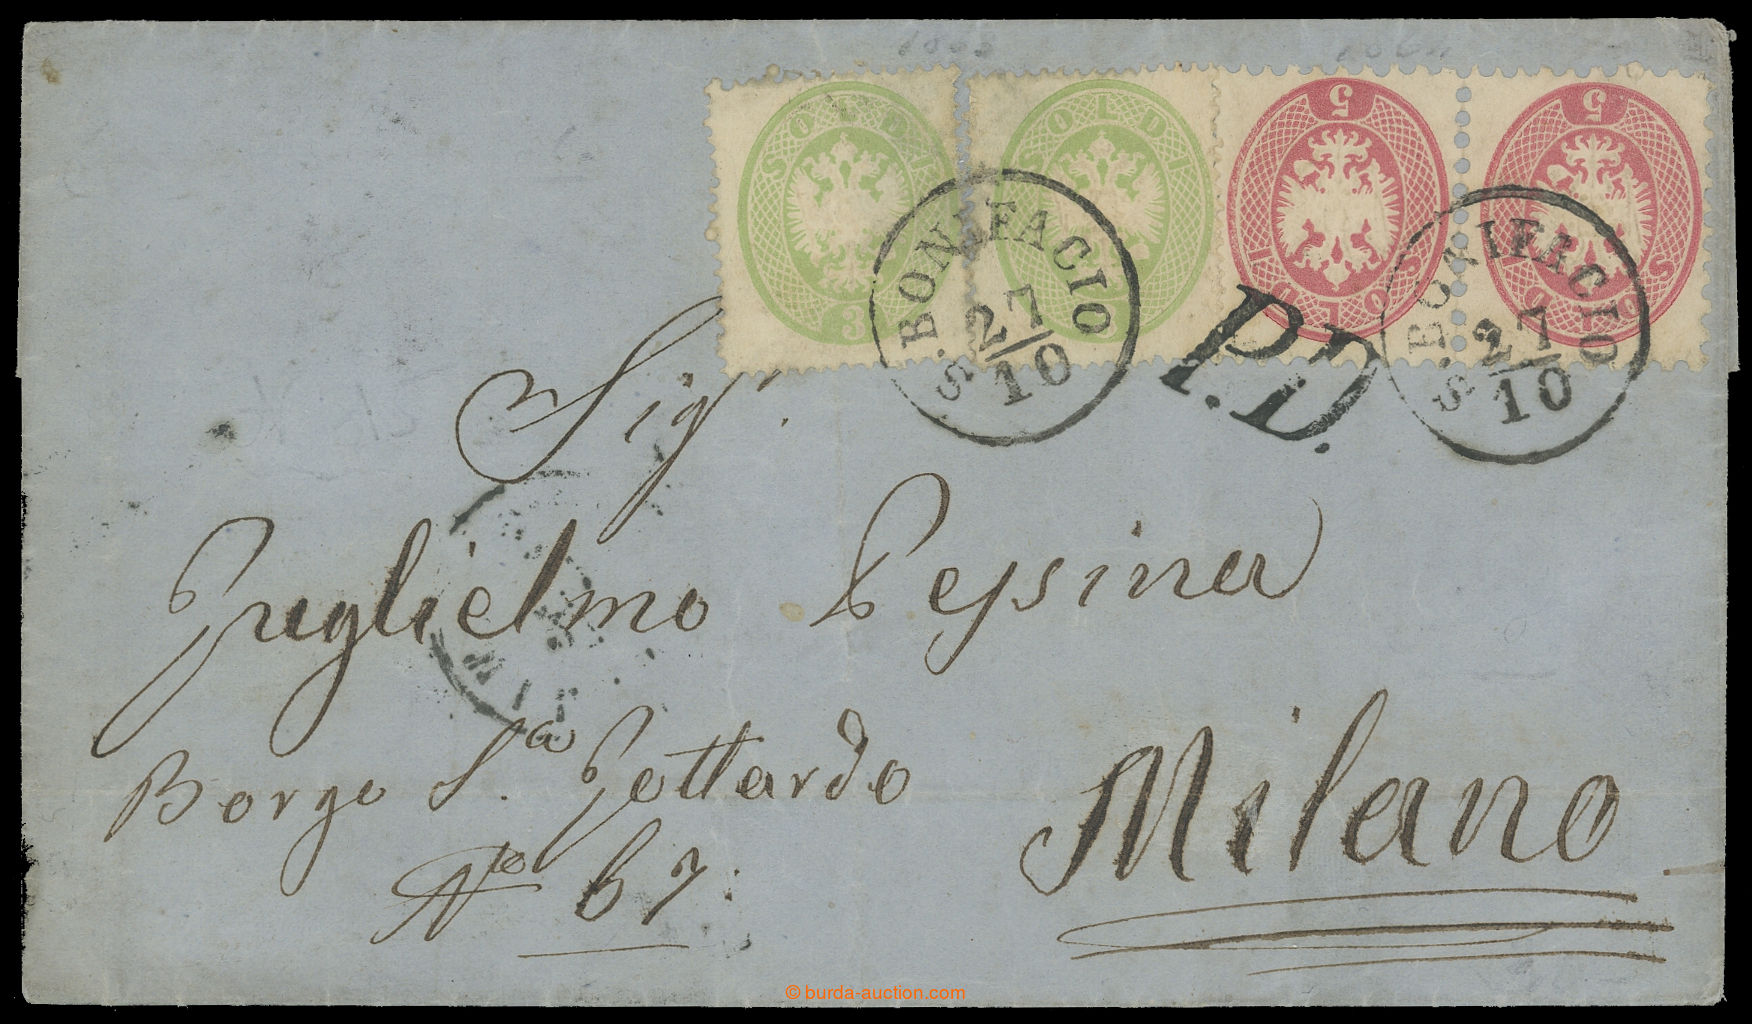 1863
SOLDI
3
SOLDI
5
SOLDI
5
SOLDI
S. BONIFACIO
27/10
P.D.
S. BONIFACIO
27/10
Sigr.
Guglielmo Pessina
Borgo S.a Gottardo
No 67.
Milano
© burda-auction.com